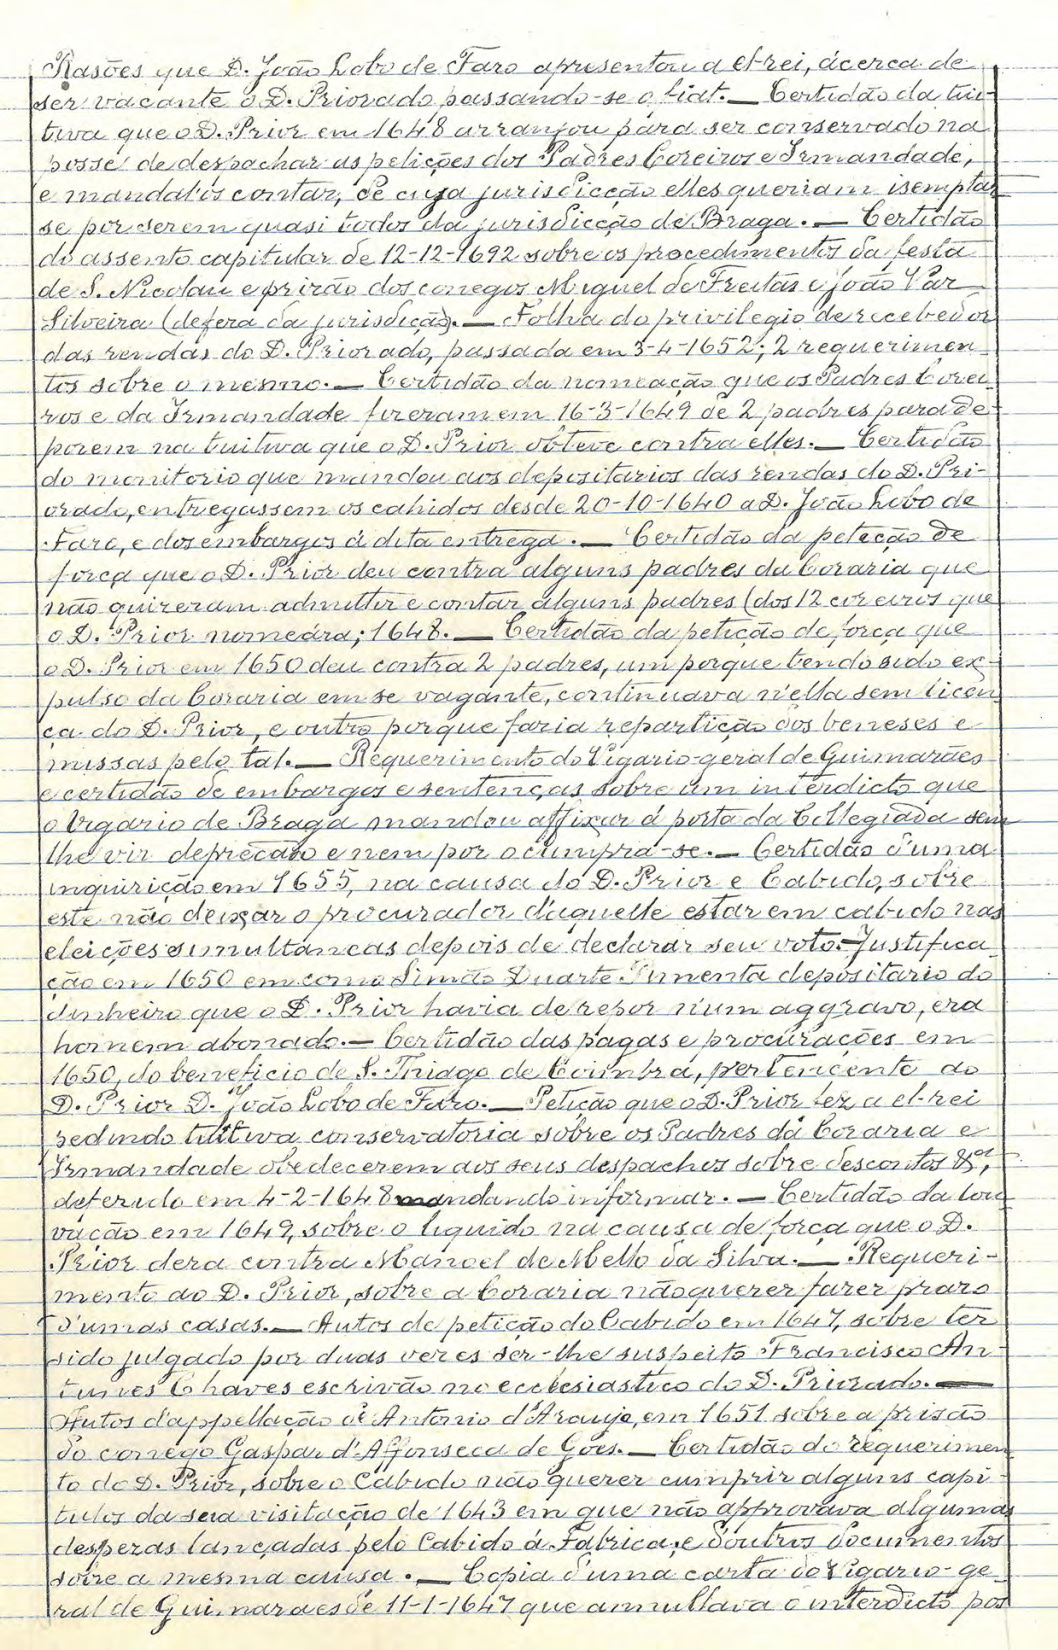 Rasões que D. João Lobo de Faro apresentou a el-rei, ácerca de
ser vacante o D. Priorado passando-se o fiat. — Certidão da tui-
tiva que o D. Prior em 1648 arranjou para ser conservado na
posse de despachar as petições dos Padres Coreiros e Irmandade,
e mandal'os contar, de cuja jurisdicção elles queriam isemptar
se por serem quasi todos da jurisdicção de Braga. — Certidão
do assento capitular de 12-12-1692 sobre os procedimentos da festa
de S. Nicolau e prizão dos conegos Miguel de Freitas e João Vaz
Silveira (defeza da jurisdição). — Folha do privilegio de recebedor
das rendas do D. Priorado, passada em 3-4-1652; 2 requerimen-
tos sobre o mesmo. — Certidão da nomeação que os Padres Corei-
ros e da Irmandade fizeram em 16-3-1649 de 2 padres para de-
porem na tuitiva que o D. Prior obteve contra elles. — Certidão
do monitorio que mandou aos depositarios das rendas do D. Pri-
orado, entregassem os cahidos desde 20-10-1640 a D. João Lobo de
Faro, e dos embargos á dita entrega. — Certidão da petição de
força que o D. Prior deu contra alguns padres da Coraria que
não quizeram admittir e contar alguns padres (dos 12 coreiros que
o D. Prior nomeára; 1648. — Certidão da petição de força que
o D. Prior em 1650 deu contra 2 padres, um porque tendo sido ex-
pulso da Coraria em se vagante, continuava n'ella sem licen
ça do D. Prior, e outro porque fazia repartição dos beneses e
missas pelo tal. — Requerimento do Vigario-geral de Guimarães
e certidão de embargos e sentenças sobre um interdicto que
o Vigario de Braga mandou affixar á porta da Collegiada sem
lhe vir deprecado e nem por o cumpra-se. — Certidão d'uma
inquirição em 1655, na causa do D. Prior e Cabido, sobre
este não deixar o procurador d'aquelle estar em cabido nas
eleições simultaneas depois de declarar seu voto. — Justifica
ção em 1650 em como Simão Duarte Pimenta depositario do
dinheiro que o D. Prior havia de repor n'um aggravo, era
homem abonado. — Certidão das pagas e procurações em
1650, do beneficio de S. Thiago de Coimbra, pertencente ao
D. Prior D. João Lobo de Faro. — Petição que o D. Prior fez a el-rei
pedindo tuitiva conservatoria sobre os Padres da Coraria e
Irmandade obedecerem aos seus despachos sobre descontos &ª,
deferido em 4-2-1648 mandando informar. — Certidão da lou
vação em 1649, sobre o liquido na causa de força que o D.
Prior dera contra Manoel de Mello da Silva. — Requeri-
mento do D. Prior, sobre a Coraria não querer fazer prazo
d'umas casas. — Autos de petição do Cabido em 1647, sobre ter
sido julgado por duas vezes ser-lhe suspeito Francisco An-
tunes Chaves escrivão no ecclesiastico do D. Priorado. —
Autos d'appellação de Antonio d'Araujo, em 1651 sobre a prisão
do conego Gaspar d'Affonseca de Goes. — Certidão do requerimen
to do D. Prior, sobre o Cabido não querer cumprir alguns capi-
tulos da sua visitação de 1643 em que não approvava algumas
despezas lançadas pelo Cabido á Fabrica, e d'outros documentos
sobre a mesma causa. — Copia d'uma carta do Vigario-ge-
ral de Guimaraes de 11-1-1647 que annullava o interdicto pos